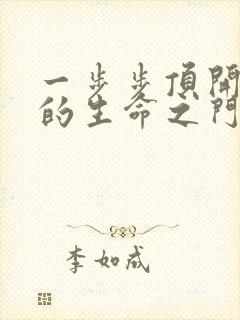 一步步頂開
的生命之門
李如成